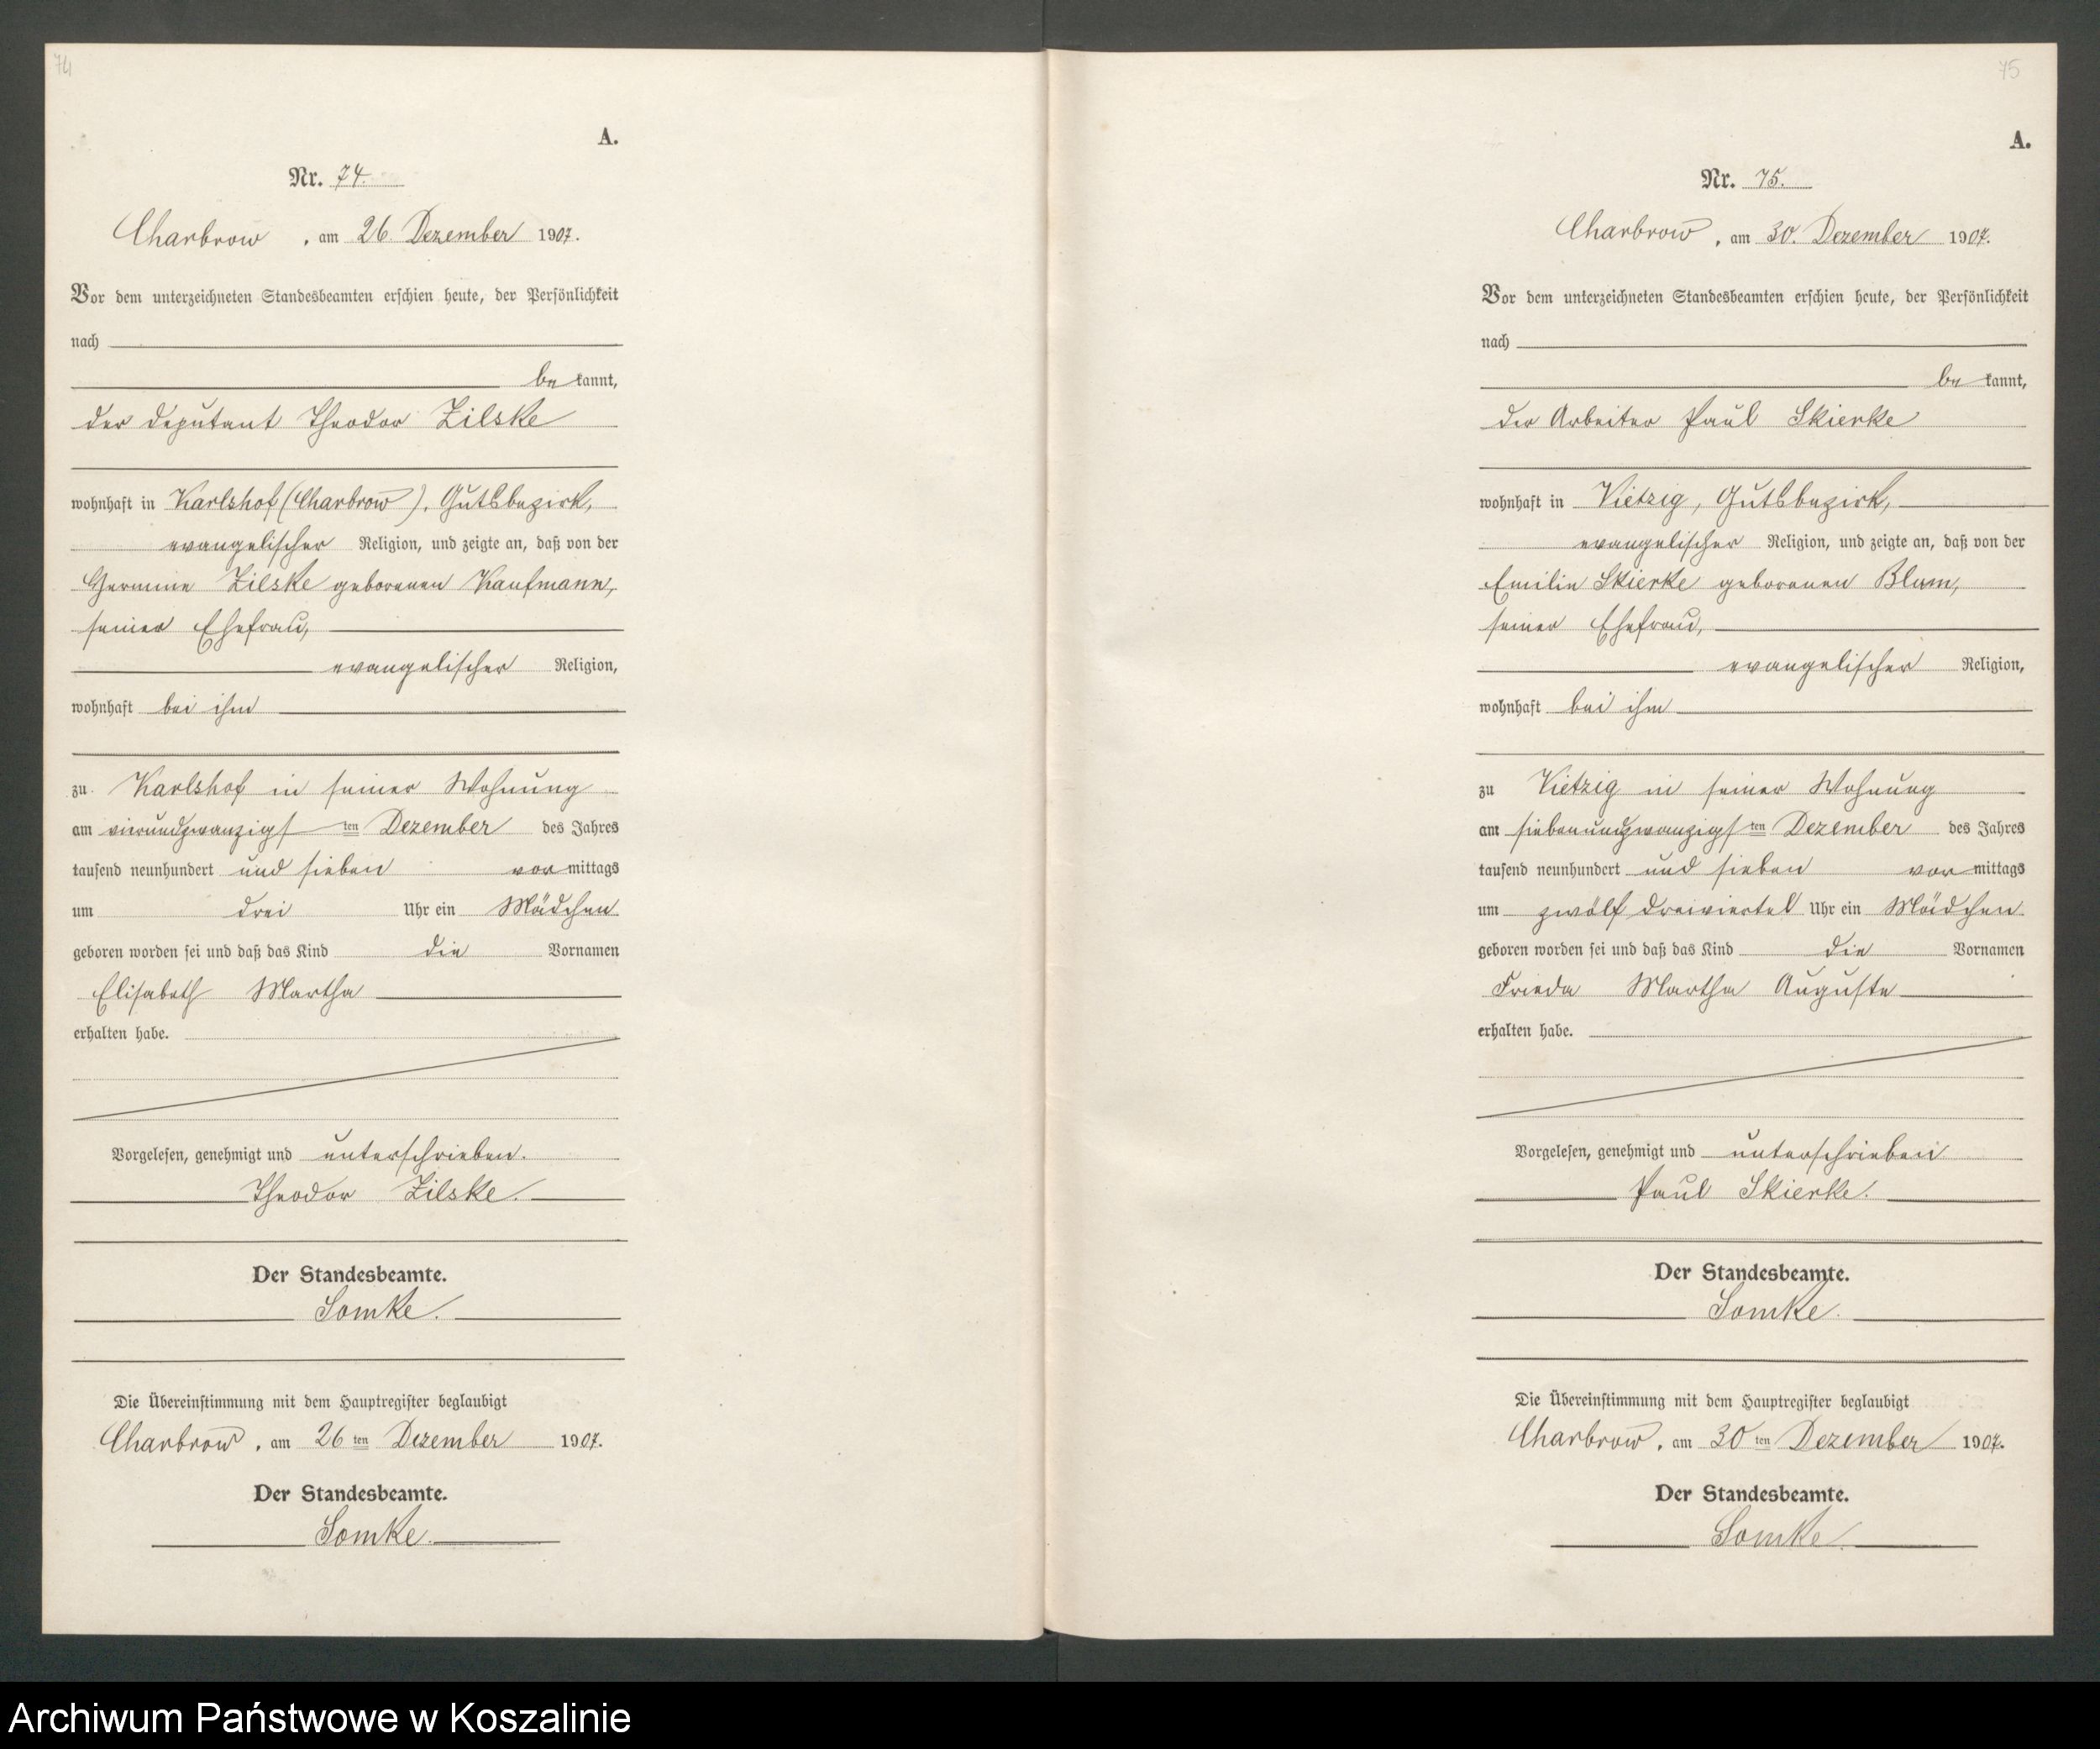 74
A.
Nr. 74.
Charbrow, am 26. Dezember 1907.
Vor dem unterzeichneten Standesbeamten erschien heute, der Persönlichkeit
nach
be kannt,
der Deputant Theodor Zilske
wohnhaft in Karlshof (Charbrow), Gutsbezirk,
evangelischer Religion, und zeigte an, daß von der
Hermine Zilske geborenen Kaufmann,
seiner Ehefrau,
evangelischer Religion,
wohnhaft bei ihm
zu Karlshof in seiner Wohnung
am vierundzwanzigsten Dezember des Jahres
tausend neunhundert und sieben vormittags
um drei Uhr ein Mädchen
geboren worden sei und daß das Kind die Vornamen
Elisabeth Martha
erhalten habe.
Vorgelesen, genehmigt und unterschrieben.
Theodor Zilske.
Der Standesbeamte.
Somke.
Die Übereinstimmung mit dem Hauptregister beglaubigt
Charbrow, am 26ten Dezember 1907.
Der Standesbeamte.
Somke.
75
A.
Nr. 75.
Charbrow, am 30. Dezember 1907.
Vor dem unterzeichneten Standesbeamten erschien heute, der Persönlichkeit
nach
be kannt,
der Arbeiter Paul Skierke
wohnhaft in Vietzig, Gutsbezirk,
evangelischer Religion, und zeigte an, daß von der
Emilie Skierke geborenen Blam,
seiner Ehefrau,
evangelischer Religion,
wohnhaft bei ihm
zu Vietzig in seiner Wohnung
am siebenundzwanzigsten Dezember des Jahres
tausend neunhundert und sieben vormittags
um zwölf dreiviertel Uhr ein Mädchen
geboren worden sei und daß das Kind die Vornamen
Frieda Martha Auguste
erhalten habe.
Vorgelesen, genehmigt und unterschrieben
Paul Skierke.
Der Standesbeamte.
Somke.
Die Übereinstimmung mit dem Hauptregister beglaubigt
Charbrow, am 30ten Dezember 1907.
Der Standesbeamte.
Somke.
Archiwum Państwowe w Koszalinie